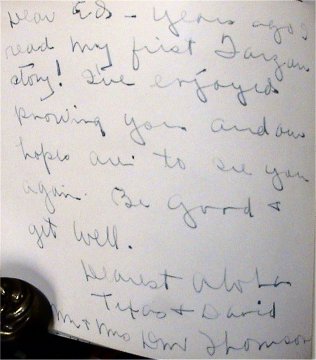 Dear Ed - Years ago I
read my first Tarzan
story! I've enjoyed
knowing you and our
hopes are to see you
again. Be good &
get well.
Dearest Aloha
Texas & David
Mr & Mrs Thomson